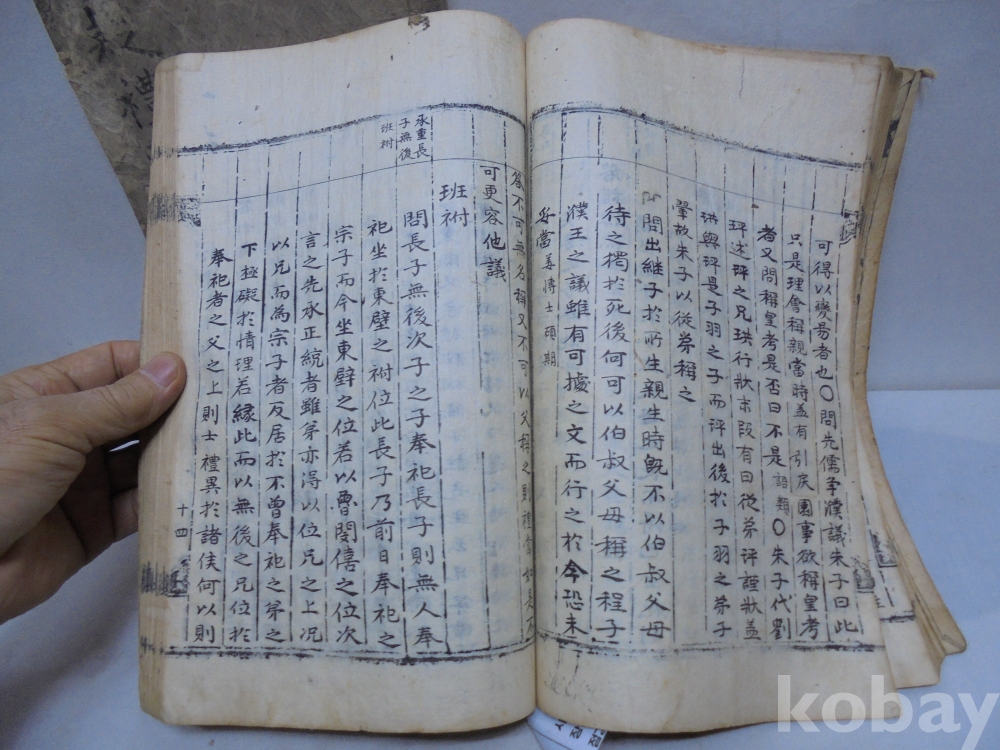 可得以變易者也〇問先儒爭濮議朱子曰此
只是理會稱親當時蓋有引戾園事欲稱皇考
者又問稱皇考是否曰不是語類〇朱子代劉
玶述玶之兄珙行狀末段有曰從弟玶謹狀蓋
珙與玶是子羽之子而玶出後於子翬之弟子
翬故朱子以從弟稱之
問出継子於所生親生時旣不以伯叔父母
待之獨於死後何可以伯叔父母稱之程子
濮王之議雖有可據之文而行之於今恐未
妥當姜博士碩期
答不可無名稱又不可以父稱之則禮
可更容他議
承重長
子無後
班祔
班祔
問長子無後次子之子奉祀長子則無人奉
祀坐於東壁之祔位此長子乃前日奉祀之
宗子而今坐東壁之位若以魯閔僖之位次
言之先承正統者雖弟亦得以位兄之上況
以兄而為宗子者反居於不曾奉祀之弟之
下極礙於情理若緣此而以無後之兄位於
奉祀者之父之上則士禮異於諸侯何以則
十四
kobay